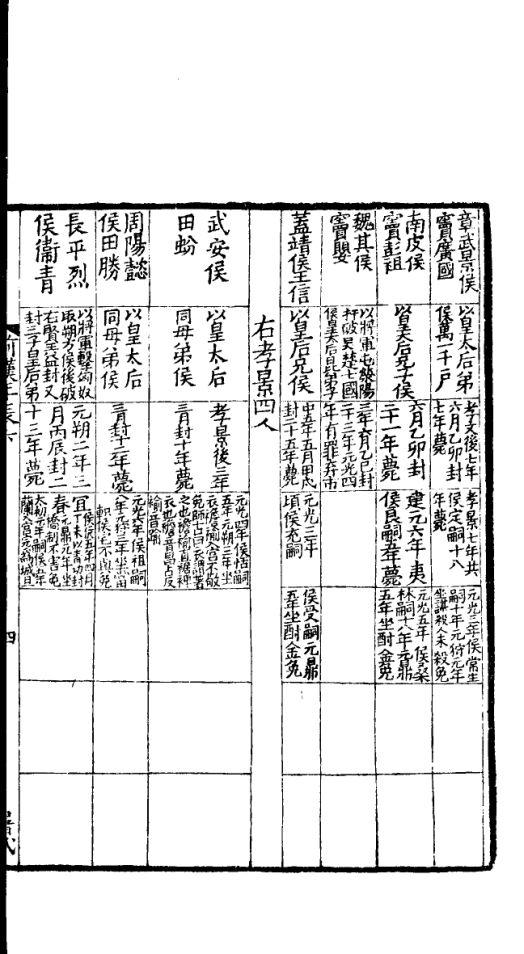 章武景侯
竇廣國
以皇太后弟
侯萬一千戶
孝文後七年
六月乙卯封
七年薨
孝景七年共
侯定嗣十八
年薨
元光三年侯常生
嗣十年元狩元年
坐謀殺人未殺免
南皮侯
竇彭祖
以皇太后兄子侯
六月乙卯封
二十一年薨
建元六年夷
侯良嗣五年薨
元光五年侯桑
林嗣十八年元鼎
五年坐酎金免
魏其侯
竇嬰
以將軍屯滎陽
扞破吳楚七國
侯皇太后昆弟子
三年六月乙巳封
二十三年元光四
年有罪弃市
蓋靖侯王信
以皇后兄侯
中五年五月甲戌
封二十五年薨
元光三年
頃侯充嗣
侯受嗣元鼎
五年坐酎金免
右孝景四人
武安侯
田蚡
以皇太后
同母弟侯
孝景後三年
三月封十年薨
元光四年侯恬嗣
五年元朔三年坐
衣襜褕入宮不敬
免
周陽懿
侯田勝
以皇太后
同母弟侯
三月封十二年薨
元光六年侯祖嗣
八年元狩三年坐當
軹侯宅不與免
長平烈
侯衞青
以將軍擊匈奴
取朔方侯後破
右賢王益封又
封三子皇后弟
元朔二年三
月丙辰封二
十三年薨
宜
春
侯伉五年四月
丁未以青功封
元鼎元年坐
矯制不害免
太初元年嗣侯五年
闌入宮完為城旦
前漢年表六
四